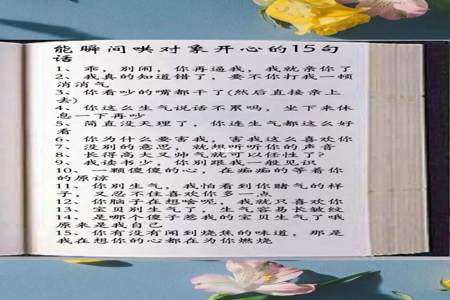 能瞬间哄对象开心的15句
话
1、乖，别闹，你再逼我，我就亲你了
2、我真的知道错了，要不你打我一顿
消消气
3、你看吵的嘴都干了(然后直接亲上
去)
4、你这么生气说话不累吗，坐下来休
息一下再吵
5、简直没天理了，你连生气都这么好
看
6、你为什么要害我，害我这么喜欢你
7、没别的意思，就想听听你的声音
8、长得高大又帅气就可以任性了?
9、我读书少，你别跟我一般见识
10、一颗傻傻的心，在痴痴的等着你
的原谅
11、你别生气，我怕看到你赌气的样
子，又忍不住喜欢你多一点
12、你脑子在想啥呢，我就只喜欢你
13、宝贝别生气了，生气容易长皱纹
14、是哪个傻子惹我的宝贝生气了哦
原来是我自己
15、你有没有闻到烧焦的味道，那是
我在想你的心都在为你燃烧